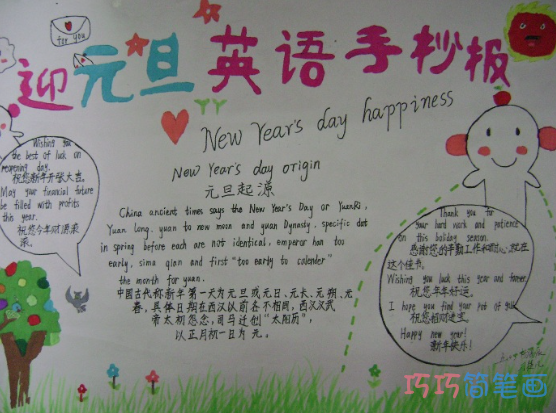 for you
迎元旦英语手抄报
New Year's day happiness
New Year's day origin
元旦起源
China ancient times says the New Year's Day or YuanRi,
Yuan long, yuan to new moon and yuan Dynasty, specific dot
in spring before each are not identical, emperor han too
early, sima qian and first "too early to calender"
the month for yuan.
中国古代称新年第一天为元旦或元日、元长、元朔、元
春。具体日期在西汉以前各不相同,西汉汉武
帝太初忽念,司马迁创"太阳历",
以正月初一日为元。
Wishing you
the best of luck on
reopening day.
祝您新年开张大吉。
May your financial future
be filled with profits
this year.
祝您今年财源滚
滚。
Thank you for
your hard work and patience
on this holiday season.
感谢您的辛勤工作和耐心,就在
这个佳节。
Wishing you luck this year and forever
祝您年年好运。
I hope you find your pot of gold
祝您招财进宝。
Happy new year!
新年快乐!
巧巧简笔画